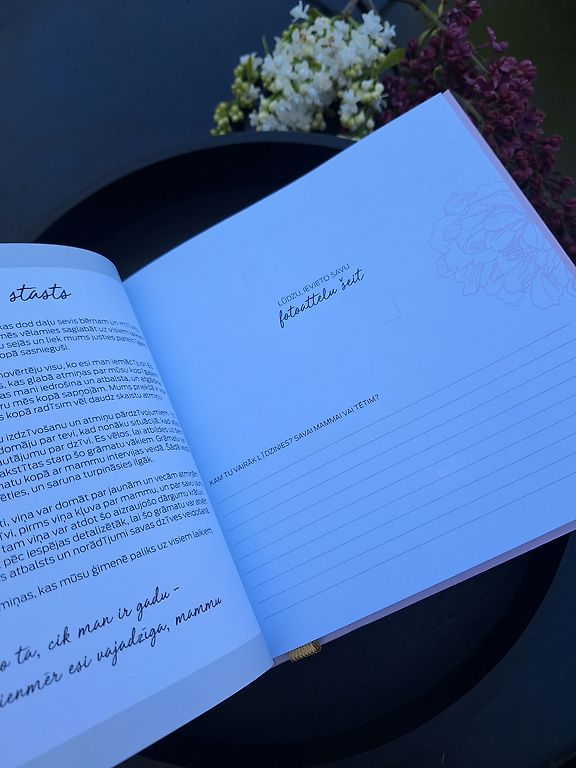 stāsts
kas dod daļu sevis bērnam un
mēs vēlamies saglabāt uz visiem
sejās un liek mums justies
kopā sasnieguši.
novērtēju visu, ko esi man iemācījusi.
kas glabā atmiņas par mūsu kopīg
mani iedrošina un atbalsta, un
mēs kopā sapņojam. Mums priekšā
kopā radīsim vēl daudz skaistu atmiņ
izdzīvošanu un atmiņu pārdzīvojumiem
domāju par tevi, kad nonāku situācijā, kad
jautājumu par dzīvi. Es vēlos, lai atbildes uz
rakstītas starp šo grāmatu vākiem.
kopā ar mammu intervijas veidā.
un saruna turpināsies ilgāk.
viņa var domāt par jaunām un vecām atmiņām
pirms viņa kļuva par mammu, un par savu
tam viņa var atdot šo aizraujošo dārgumu krātuvi
pēc iespējas detalizētāk, lai šo grāmatu varētu
atbalsts un norādījumi savas dzīves veidošanā.
kas mūsu ģimenē paliks uz visiem laikiem.
no tā, cik man ir gadu -
vienmēr esi vajadzīga, mammu
LŪDZU, IEVIETO SAVU
fotoattēlu šeit
KAM TU VAIRĀK LĪDZINIES? SAVAI MAMMAI VAI TĒTIM?